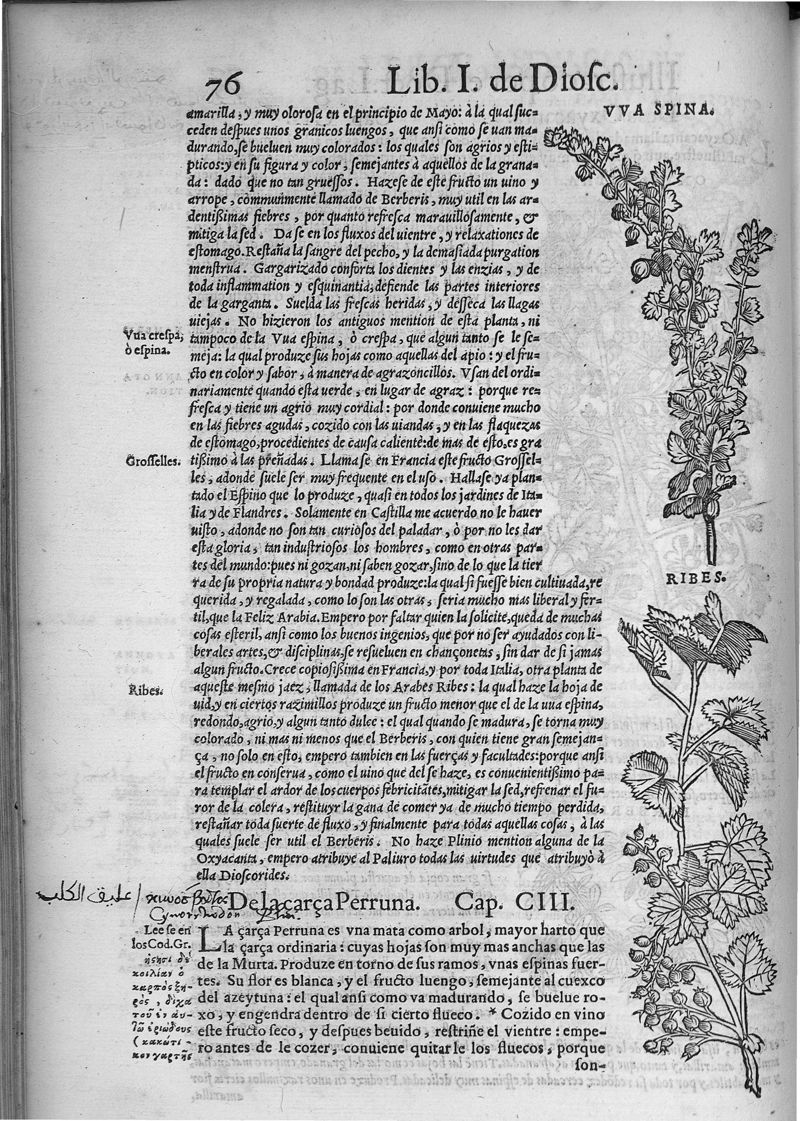 76
Lib. I. de Diosc.
amarilla, y muy olorosa en el principio de Mayo: à la qual suc-
ceden despues unos granicos luengos, que ansi como se uan ma-
durando, se bueluen muy colorados: los quales son agrios y esti-
pticos: y en su figura y color, semejantes à aquellos de la grana-
da: dado que no tan gruessos. Hazese de este fructo un uino y
arrope, cõmuñmente llamado de Berberis, muy util en las ar-
dentißimas fiebres, por quanto refresca marauillosamente, &
mitiga la sed. Da se en los fluxos del uientre, y relaxationes de
estomago. Restaña la sangre del pecho, y la demasiada purgation
menstrua. Gargarizado conforta los dientes y las enzias, y de
toda inflammation y esquinantia, defiende las partes interiores
de la garganta. Suelda las frescas heridas, y desseca las llagas
uiejas. No hizieron los antiguos mention de esta planta, ni
tampoco de la Vua espina, ò crespa, que algun tanto se le se-
meja: la qual produze sus hojas como aquellas del apio: y el fru-
cto en color y sabor, à manera de agrazoncillos. Vsan del ordi-
nariamente quando esta uerde, en lugar de agraz: porque re-
fresca y tiene un agrio muy cordial: por donde conuiene mucho
en las fiebres agudas, cozido con las uiandas, y en las flaquezas
de estomago, procedientes de causa caliente: de mas de esto, es gra
tißimo à las preñadas. Llama se en Francia este fructo Grossel-
les, adonde suele ser muy frequente en el uso. Hallase ya plan-
tado el Espino que lo produze, quasi en todos los jardines de Ita-
lia y de Flandres. Solamente en Castilla me acuerdo no le hauer
uisto, adonde no son tan curiosos del paladar, ò por no les dar
esta gloria, tan industriosos los hombres, como en otras par-
tes del mundo: pues ni gozan, ni saben gozar, sino de lo que la tier
ra de su propria natura y bondad produze: la qual si fuesse bien cultiuada, re
querida, y regalada, como lo son las otras, seria mucho mas liberal y fer-
til, que la Feliz Arabia. Empero por faltar quien la solicite, queda de muchas
cosas esteril, ansi como los buenos ingenios, que por no ser ayudados con li-
berales artes, & disciplinas, se resueluen en chançonetas, sin dar de si jamas
algun fructo. Crece copiosißima en Francia, y por toda Italia, otra planta de
aqueste mesmo jaez, llamada de los Arabes Ribes: la qual haze la hoja de
uid, y en ciertos razimillos produze un fructo menor que el de la uua espina,
redondo, agrio, y algun tanto dulce: el qual quando se madura, se torna muy
colorado, ni mas ni menos que el Berberis, con quien tiene gran semejan-
ça, no solo en esto, empero tambien en las fuerças y facultades: porque ansi
el fructo en conserua, como el uino que del se haze, es conuenientißimo pa-
ra templar el ardor de los cuerpos febricitãtes, mitigar la sed, refrenar el fu-
ror de la colera, restituyr la gana de comer ya de mucho tiempo perdida,
restañar toda suerte de fluxo, y finalmente para todas aquellas cosas, à las
quales suele ser util el Berberis. No haze Plinio mention alguna de la
Oxyacanta, empero atribuye al Paliuro todas las uirtudes que atribuyò à
ella Dioscorides.
Vua crespa,
ò espina.
Grosselles.
Ribes.
VVA SPINA.
RIBES.
عليق الكلب
De la çarça Perruna. Cap. CIII.
LA çarça Perruna es vna mata como arbol, mayor harto que
la çarça ordinaria: cuyas hojas son muy mas anchas que las
de la Murta. Produze en torno de sus ramos, vnas espinas fuer-
tes. Su flor es blanca, y el fructo luengo, semejante al cuexco
del azeytuna: el qual ansi como va madurando, se buelue ro-
xo, y engendra dentro de si cierto flueco. * Cozido en vino
este fructo seco, y despues beuido, restriñe el vientre: empe-
ro antes de le cozer, conuiene quitarle los fluecos, porque
son-
Lee se en
los Cod. Gr.
κοιλίαν ὁ
καρπὸς ξη-
ρὸς, δίχα